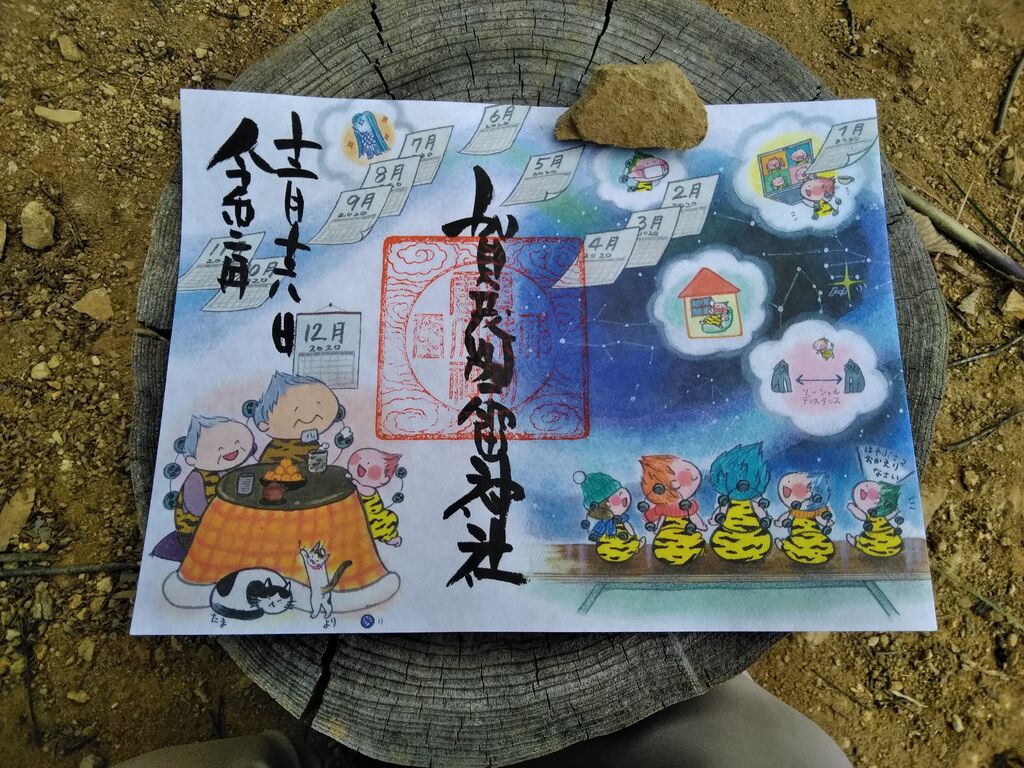 令和二年
十二月十六日
賀茂別雷神社
1月
2020
2月
3月
2020
4月
2020
5月
2020
6月
2020
7月
8月
9月
2020
12月
2020
ソーシャル
ディスタンス
はやぶさ2
おかえり
なさい
たま
より